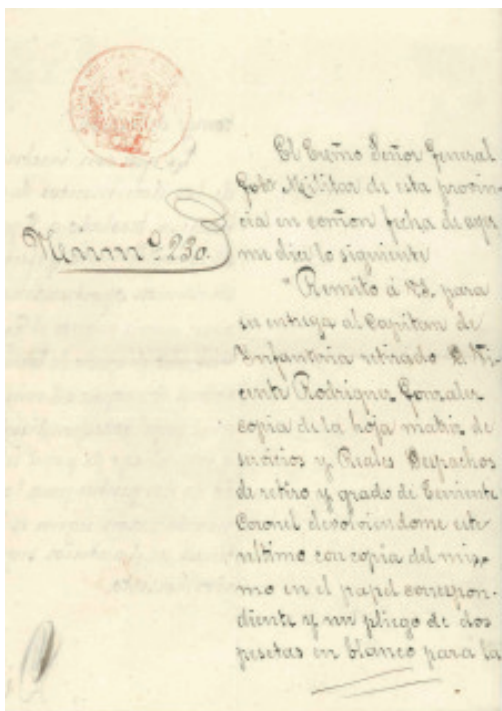 El Excmo Señor General
Gobr. Militar de esta provin-
cia en comon fecha de ayer
me dice lo siguiente
Numº 230.
"Remito á VS. para
su entrega al Capitan de
Infanteria retirado D. Vi-
cente Rodriguez Gonzalez
copia de la hoja matriz de
servicios y Reales Despachos
de retiro y grado de Teniente
Coronel devolviendome este
ultimo con copia del mis-
mo en el papel correspon-
diente y un pliego de dos
pesetas en blanco para la